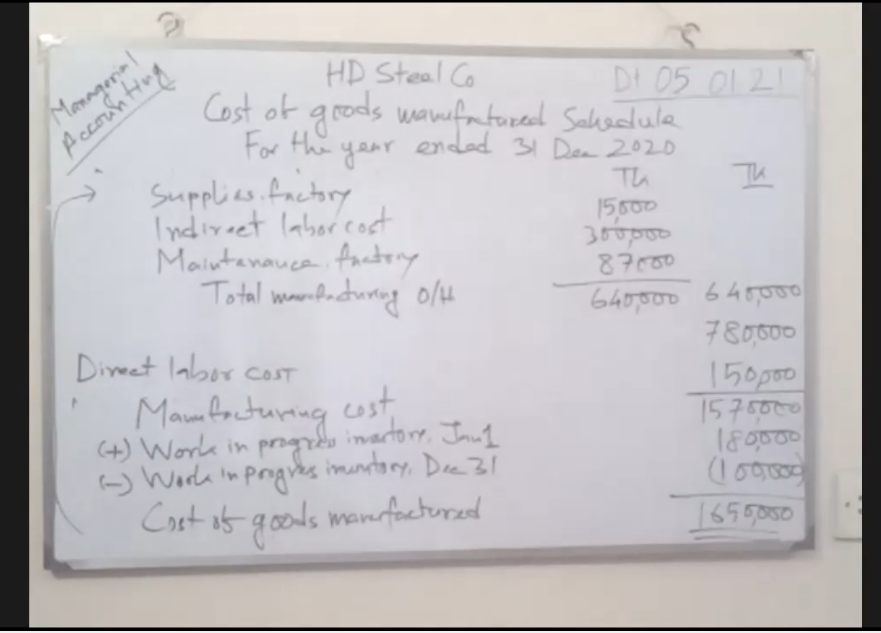 Managerial
Accounting
HD Steel Co
Dt 05 01 21
Cost of goods manufactured Schedule
For the year ended 31 Dec 2020
Tk Tk
Supplies, factory 15,000
Indirect labor cost 300,000
Maintenance, factory 87000
Total manufacturing O/H 640,000 640,000
780,000
Direct labor cost 150,000
Manufacturing cost 1570000
(+) Work in progress inventory, Jan 1 180,000
(-) Work in progres inventory, Dec 31 (100,000)
Cost of goods manufactured 1650,000